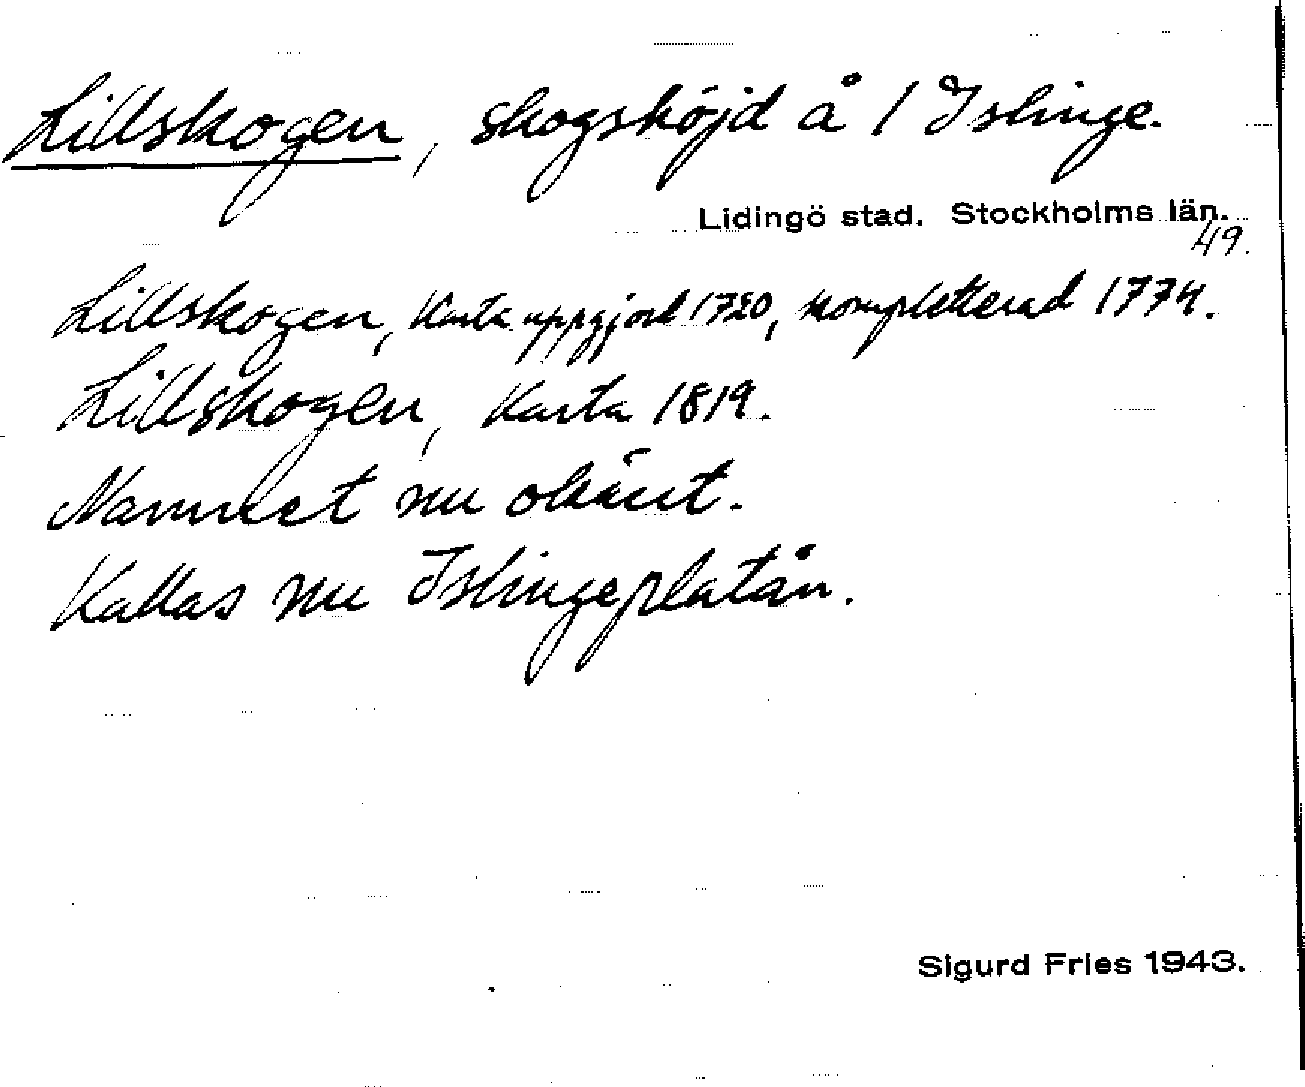 Lillskogen, skogshöjd å / Islinge.
Lidingö stad. Stockholms län.
49.
Lillskogen, Karta uppgjord 1720, kompletterad 1774.
Lillskogen, Karta 1819.
Namnet nu okänt.
Kallas nu Islingeplatån.
Sigurd Fries 1943.